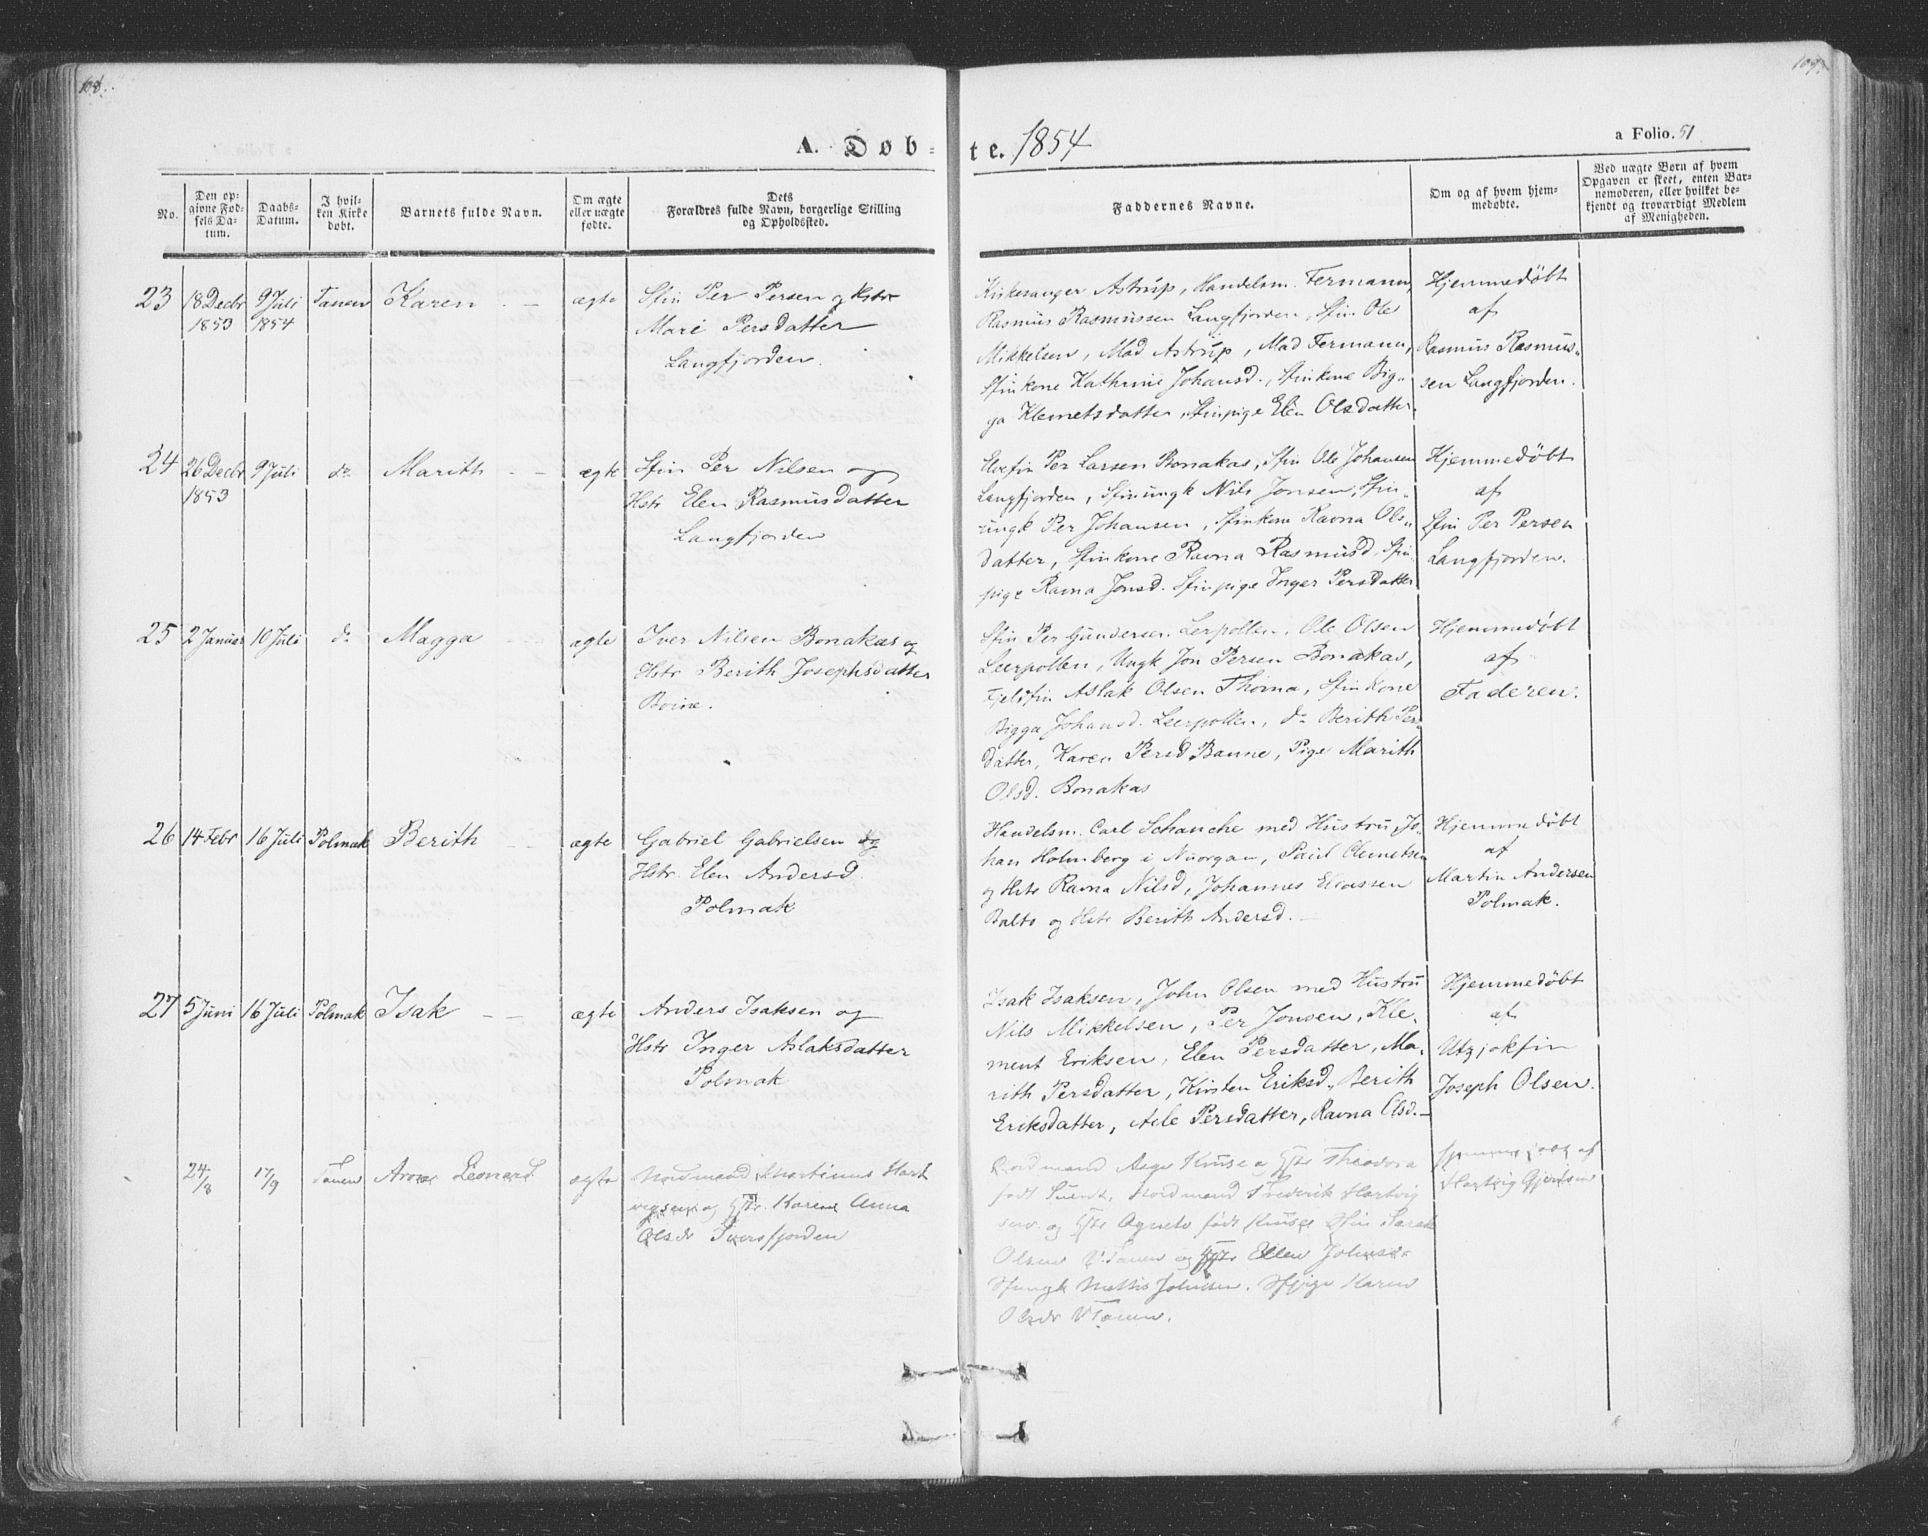 108.
109.
A. Døb-
te. 1854
a Folio. 51
No.
Den op-
givne Fød-
sels Da-
tum.
Daabs-
Datum.
I hvil-
ken Kirke
døbt.
Barnets fulde Navn.
Om ægte
eller uægte
fødte.
Dets
Forældres fulde Navn, borgerlige Stilling
og Opholdssted.
Faddernes Navne.
Om og af hvem hjem-
medøbte.
Ved uægte Børn af hvem
Opgaven er skeet, enten Bar-
nemoderen, eller hvilket be-
kjendt og troværdigt Medlem
af Menigheden.
23
18 Decbr
1853
9 Juli
1854
Tanen
Karen
ægte
Sfin Per Persen og Hstr
Mari Persdatter
Langfjorden.
Kirkesanger Astrup, Handelsm. Fermann,
Rasmus Rasmussen Langfjorden, Sfin Ole
Mikkelsen, Mad Astrup, Mad Fermann,
Sfinkone Kathrine Johansd., Sfinkone Big-
ga Klemetsdatter, Sfinpige Elen Olsdatter.
Hjemmedøbt
af
Rasmus Rasmus-
sen Langfjorden.
24
26 Decbr
1853
9 Juli
do
Marith
ægte
Sfin Per Nilsen og
Hstr Elen Rasmusdatter
Langfjorden
Elvefin Per Larsen Bonakas, Sfin Ole Johansen
Langfjorden, Sfinungk Nils Jonsen, Sfin-
ungk Per Johansen, Sfinkone Ravna Ols-
datter, Sfinkone Ravna Rasmusd, Sfin-
pige Ravna Jonsd. Sfinpige Inger Persdatter
Hjemmedøbt
af
Sfin Per Persen
Langfjorden.
25
2 Januar
10 Juli
do
Magga
ægte
Iver Nilsen Bonakas og
Hstr Berith Josephsdatter
Boine.
Sfin Per Gundersen Lerpollen, Ole Olsen
Leerpollen, Ungk Jon Persen Bonakas,
Fjeldfin Aslak Olsen Thoma, Sfinkone
Bigga Johansd. Leerpollen, do Berith Pers-
datter, Karen Persd Banne, Pige Marith
Olsd. Bonakas
Hjemmedøbt
af
Faderen.
26
14 Febr
16 Juli
Polmak
Berith
ægte
Gabriel Gabrielsen og
Hstr. Elen Andersd.
Polmak
Handelsm. Carl Schanche med Hustru, Jo-
han Holmberg i Nuorgan, Paul Clemetsen
og Hstr Ravna Nilsd, Johannes Eliassen
Balto og Hstr Berith Andersd.
Hjemmedøbt
af
Martin Andersen
Polmak.
27
5 Juni
16 Juli
Polmak
Isak
ægte
Anders Isaksen og
Hstr Inger Aslaksdatter
Polmak
Isak Isaksen, John Olsen med Hustru
Nils Mikkelsen, Per Jonsen, Kle-
ment Eriksen, Elen Persdatter, Ma-
rith Persdatter, Kirsten Eriksd., Berith
Eriksdatter, Aile Persdatter, Ravna Olsd.
Hjemmedøbt
af
Utsjokfin
Joseph Olsen.
24/8
17/9
Tanen
Leonard
ægte
Nordmand Hart
vigsen og Hstr. Karen Anna
Olsdr
Nordmand Kruse og Hstr Theodora
født Nordmand Frederik Hartvig
sen og Hstr født Kruse Sfin
Olsen og Hstr Ellen
Karen
Olsdr
af
Hartvig